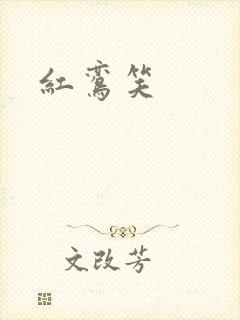 紅鸞笑
文改芳